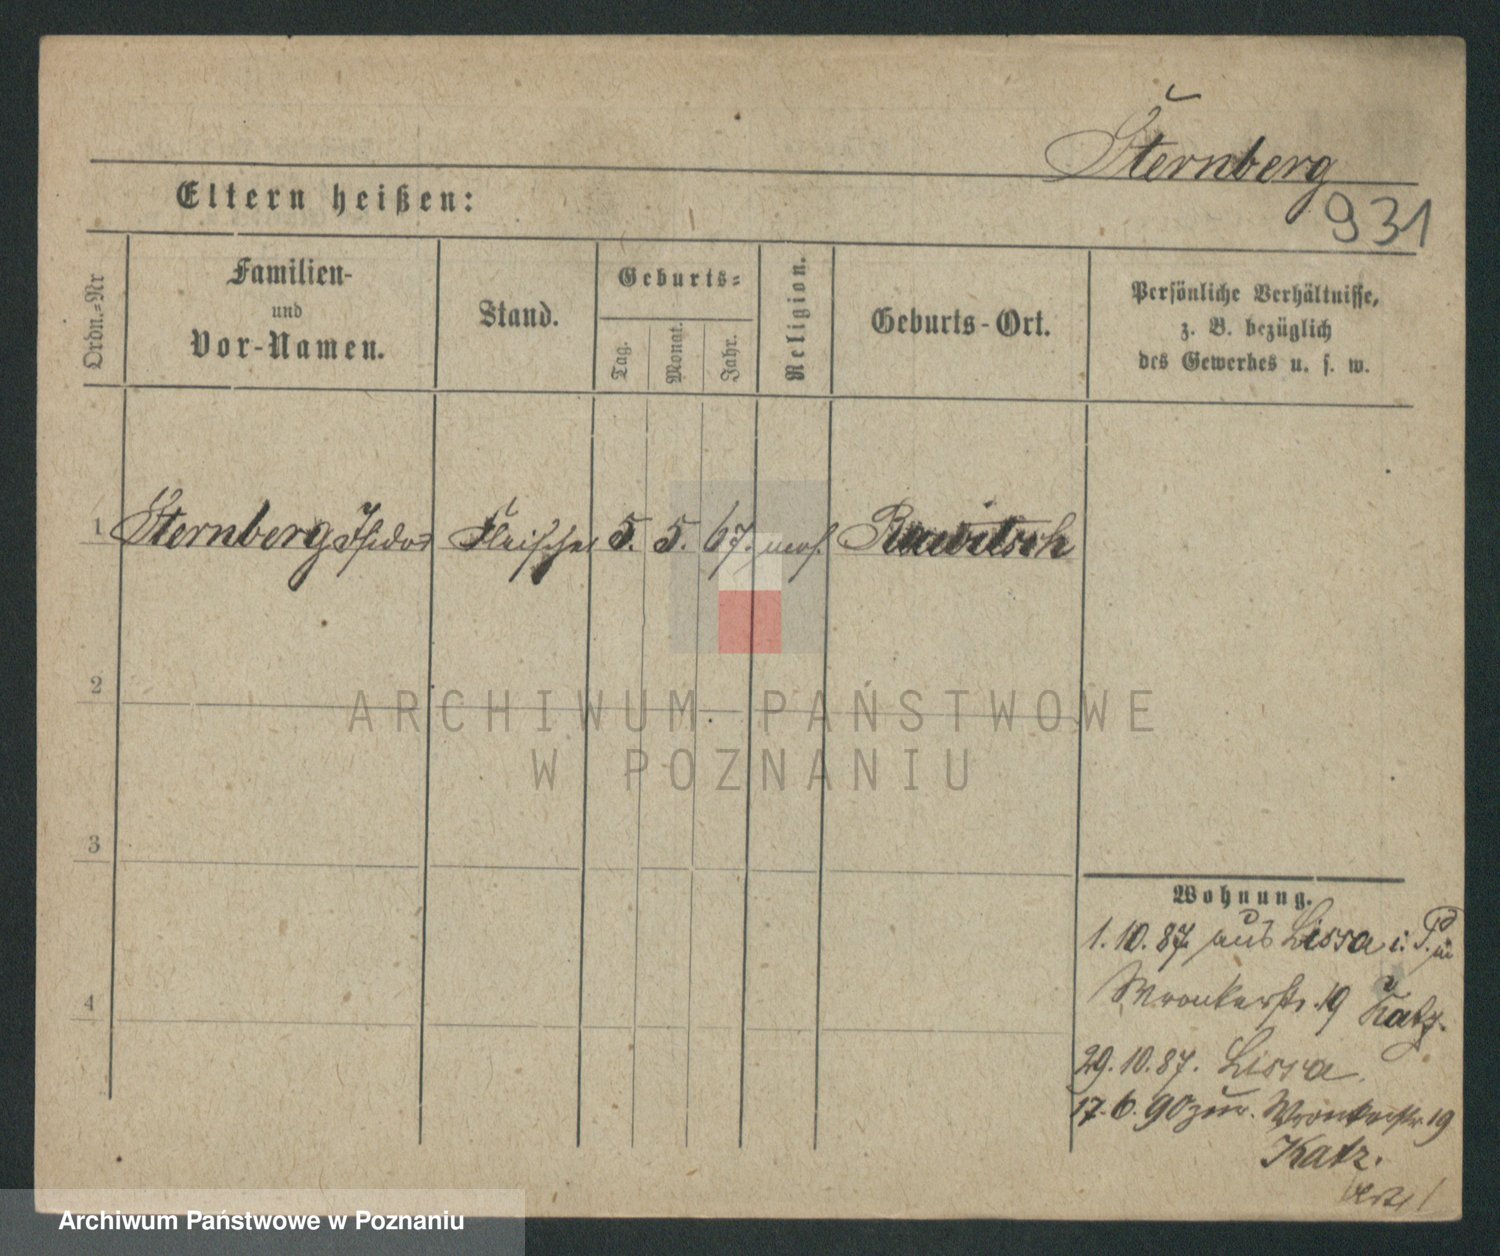 Sternberg
931
Eltern heißen:
Ordn.-Nr
Familien-
und
Vor-Namen.
Stand.
Geburts-
Tag.
Monat.
Jahr.
Religion.
Geburts-Ort.
Persönliche Verhältnisse,
z. B. bezüglich
des Gewerbes u. s. w.
1 Sternberg Isidor Fleischer 5. 5. 67. mos. Rawitsch
2
3
4
Wohnung.
1. 10. 87. aus Lissa i. P. in
Wronkerstr. 19 Katz.
29. 10. 87. Lissa.
17. 6. 90 zur. Wronkerstr. 19
Katz.
ARCHIWUM PAŃSTWOWE
W POZNANIU
Archiwum Państwowe w Poznaniu